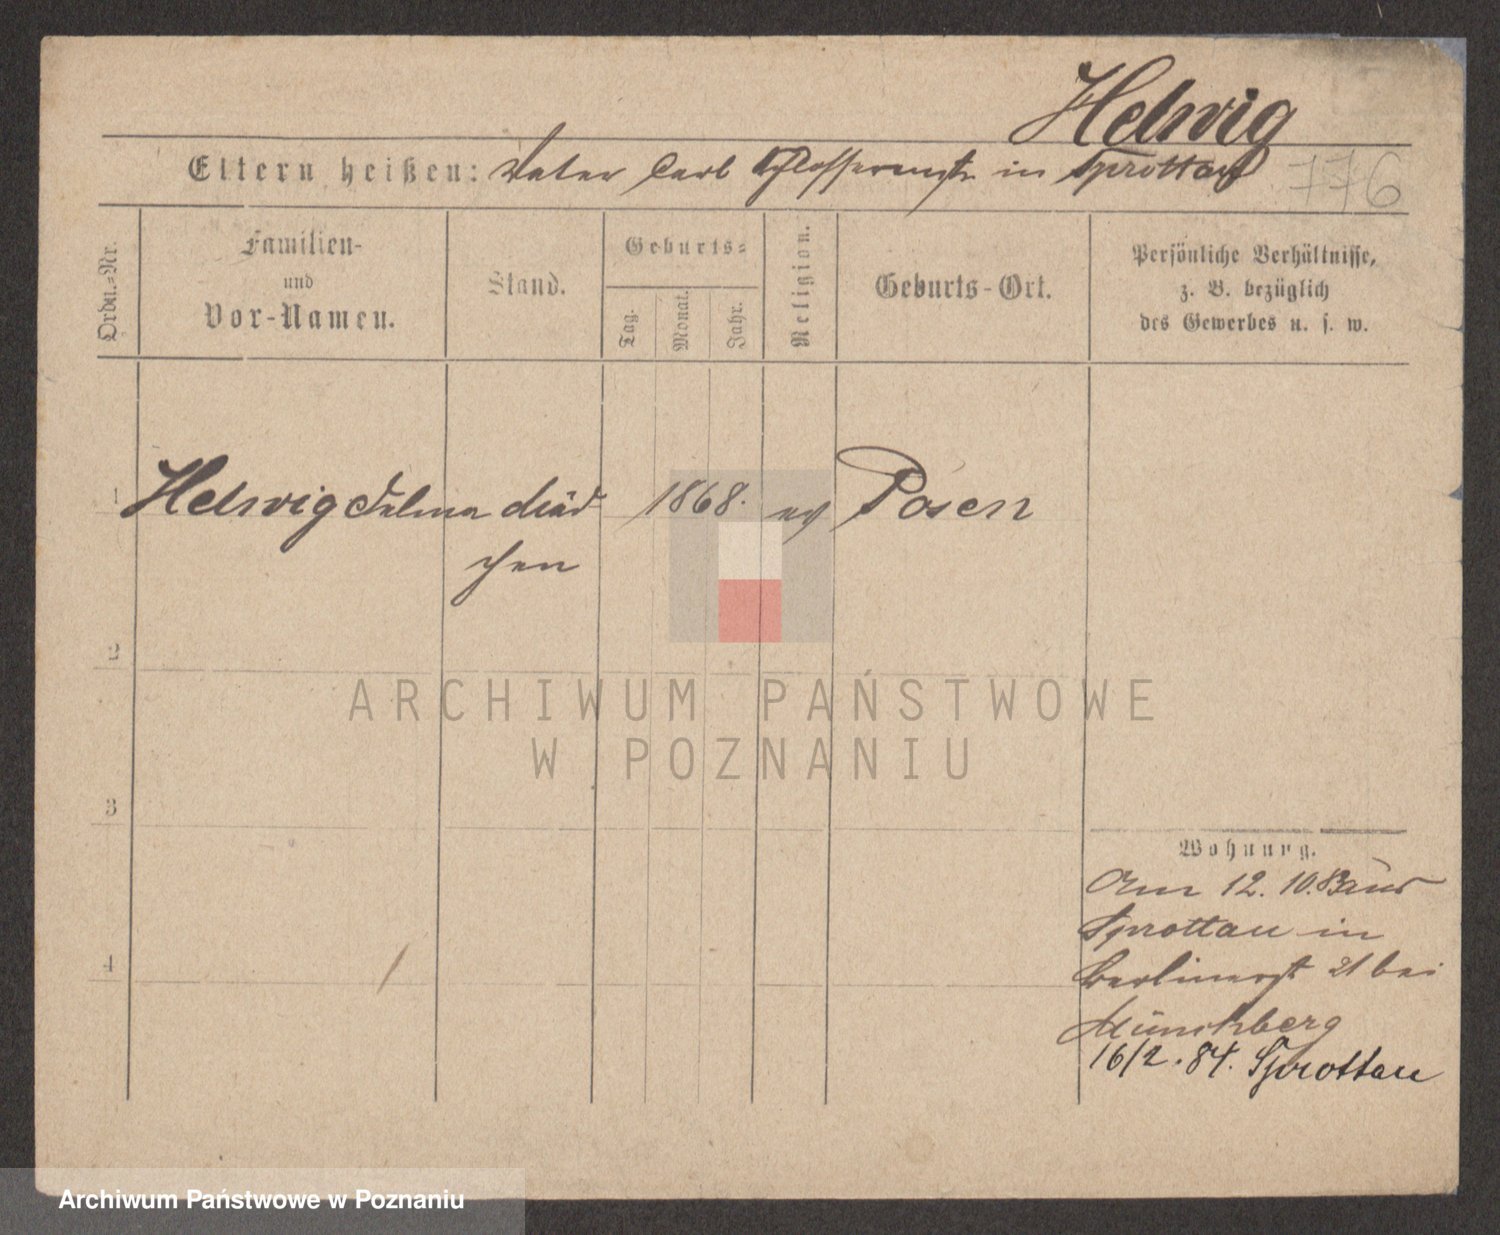 Helwig
Eltern heißen: Vater Carl Schlossermstr in Sprottau
776
Ordn.-Nr.
Familien-
und
Vor-Namen.
Stand.
Geburts-
Tag.
Monat.
Jahr.
Religion.
Geburts-Ort.
Persönliche Verhältnisse,
z. B. bezüglich
des Gewerbes u. s. w.
1 Helwig Selma Mäd 1868. ev Posen
chen
2
ARCHIWUM PAŃSTWOWE
W POZNANIU
3
Wohnung.
Am 12. 10. 83 aus
Sprottau in
4
Berlinerst 21 bei
Münchberg
16/2. 84. Sprottau
Archiwum Państwowe w Poznaniu